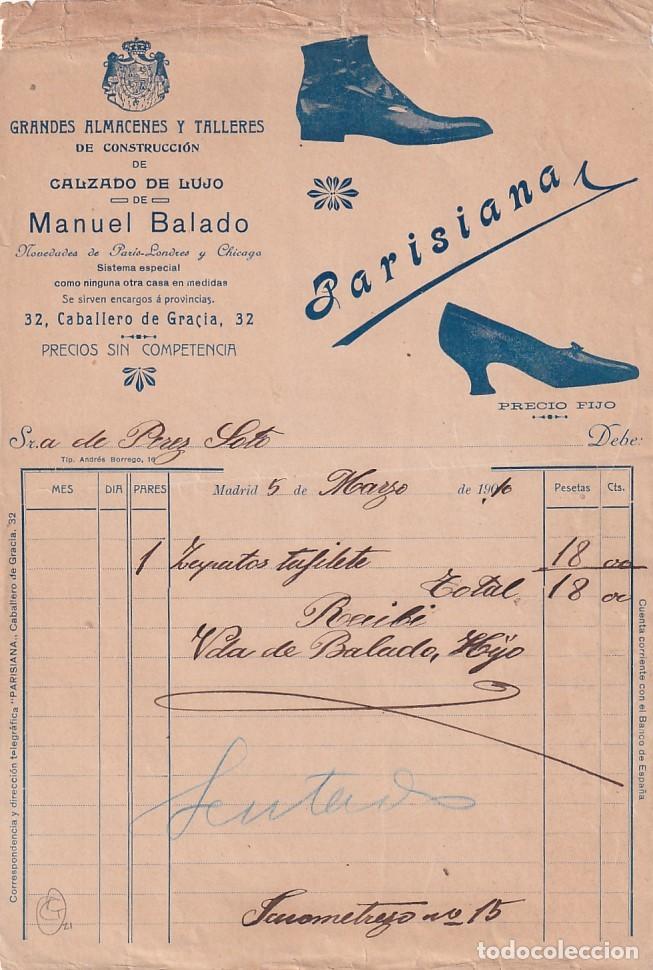 GRANDES ALMACENES Y TALLERES
DE CONSTRUCCIÓN
DE
CALZADO DE LUJO
DE
Manuel Balado
Novedades de París-Londres y Chicago
Sistema especial
como ninguna otra casa en medidas
Se sirven encargos á provincias.
32, Caballero de Gracia, 32
PRECIOS SIN COMPETENCIA
Parisiana
PRECIO FIJO
Sr.a de Perez Soto Debe:
Tip. Andrés Borrego, 16
MES DIA PARES Madrid 5 de Marzo de 1910 Pesetas Cts.
1 Zapatos tafilete 18 00
Total 18 00
Recibi
Vda de Balado, Hijo
Sentado
nº 15
Correspondencia y dirección telegráfica "PARISIANA„ Caballero de Gracia, 32
Cuenta corriente con el Banco de España
21
todocoleccion